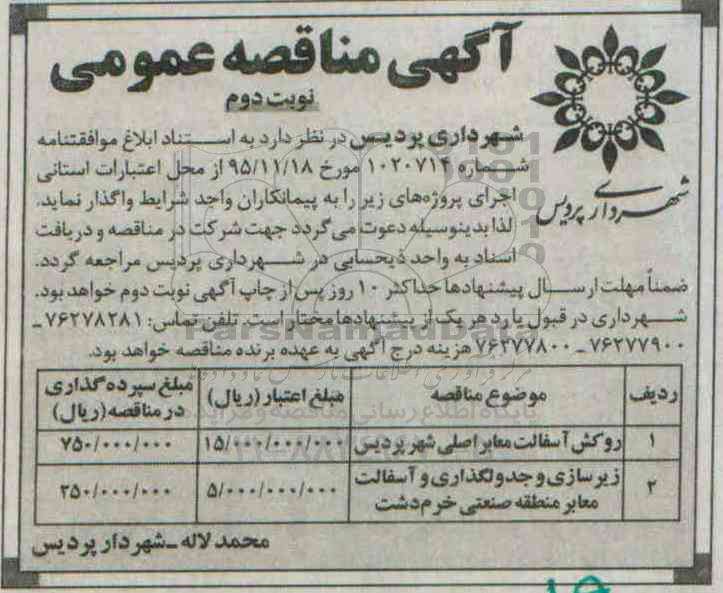 آگهی مناقصه عمومی
نوبت دوم
شهرداری پردیس
شهرداری پردیس در نظر دارد به استناد ابلاغ موافقتنامه
شماره ۱۰۲۰۷۱۴ مورخ ۹۵/۱۱/۱۸ از محل اعتبارات استانی
اجرای پروژه‌های زیر را به پیمانکاران واجد شرایط واگذار نماید.
لذا بدینوسیله دعوت می‌گردد جهت شرکت در مناقصه و دریافت
اسناد به واحد ذیحسابی در شهرداری پردیس مراجعه گردد.
ضمناً مهلت ارسال پیشنهادها حداکثر ۱۰ روز پس از چاپ آگهی نوبت دوم خواهد بود.
شهرداری در قبول یا رد هر یک از پیشنهادها مختار است. تلفن تماس: ۷۶۲۷۸۲۸۱ـ
۷۶۲۷۷۹۰۰ ـ ۷۶۲۷۷۸۰۰ هزینه درج آگهی به عهده برنده مناقصه خواهد بود.
ParsNamadData
پایگاه اطلاع رسانی مناقصه و مزایده
ردیف موضوع مناقصه مبلغ اعتبار (ریال) مبلغ سپرده گذاری در مناقصه (ریال)
۱ روکش آسفالت معابر اصلی شهر پردیس ۱۵/۰۰۰/۰۰۰/۰۰۰ ۷۵۰/۰۰۰/۰۰۰
۲ زیرسازی و جدولگذاری و آسفالت معابر منطقه صنعتی خرم‌دشت ۵/۰۰۰/۰۰۰/۰۰۰ ۲۵۰/۰۰۰/۰۰۰
محمد لاله ـ شهردار پردیس